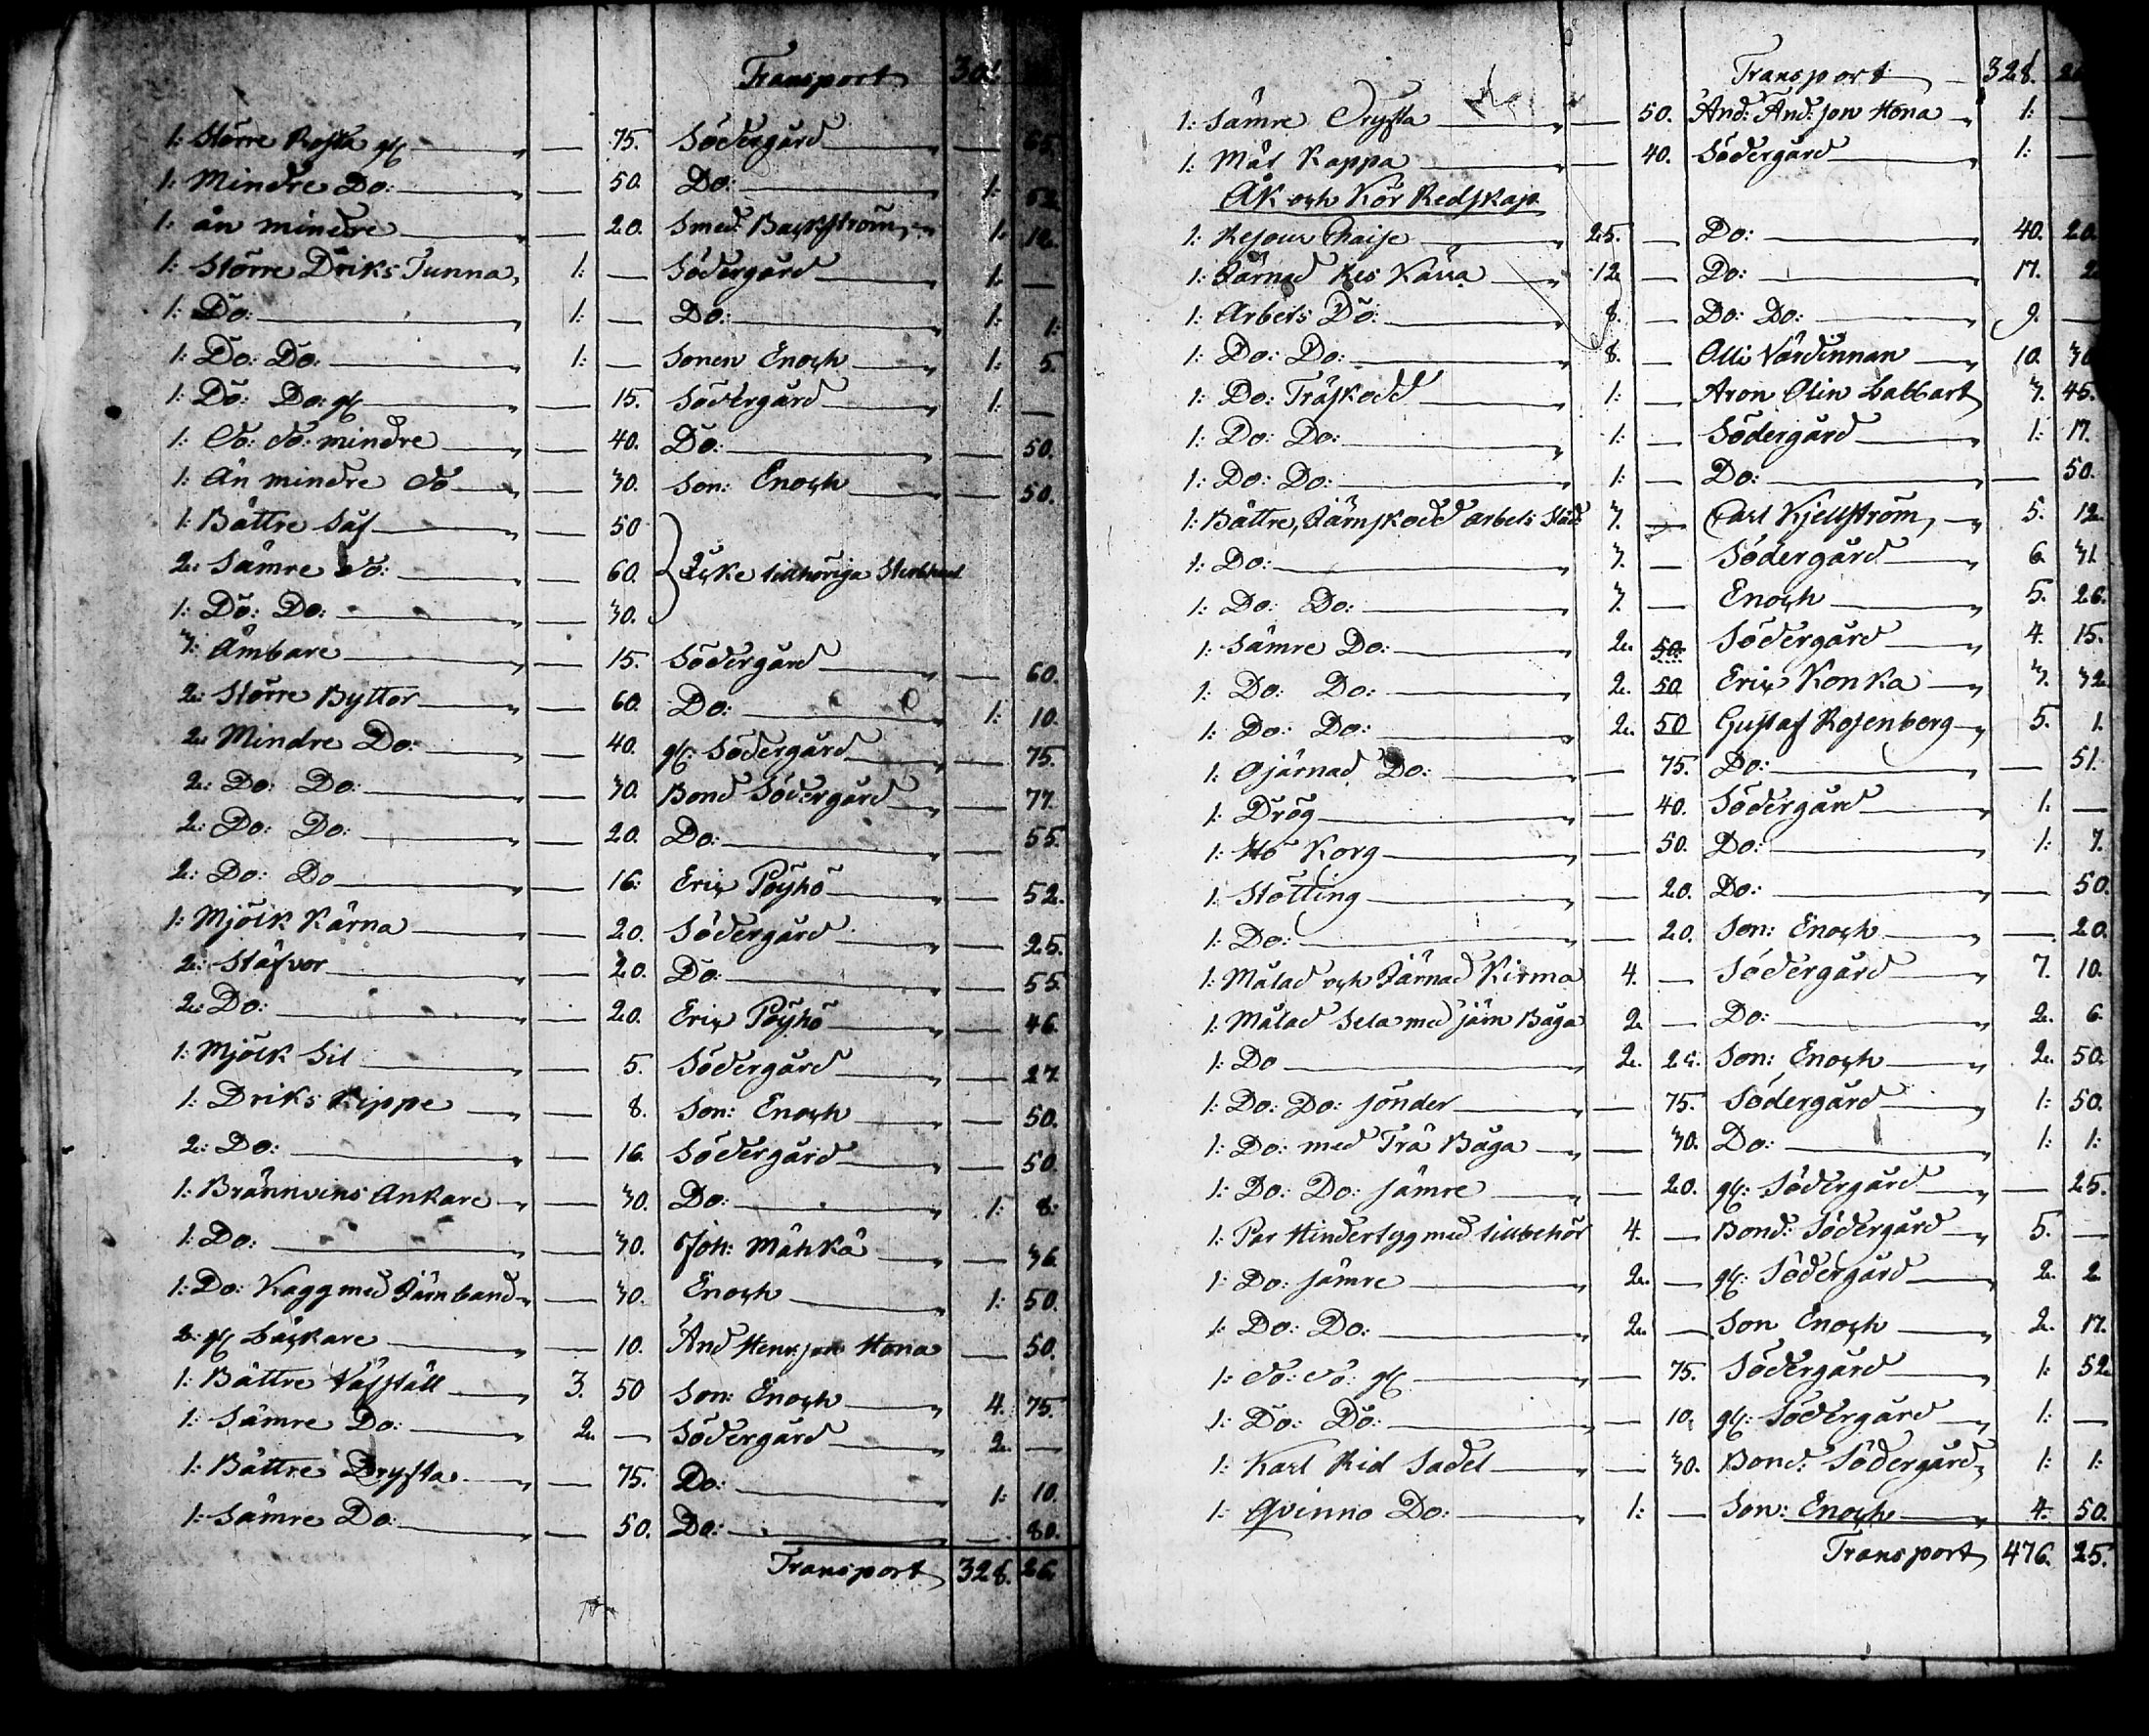 Transport 301.
1: Större Rostka gl. — 75. Södergård — 65.
1: Mindre Do: — 50. Do: 1: 52.
1: än mindre — 20. Smed: Backström 1: 12.
1: Större Driks Tunna, 1: — Södergård 1: —
1: Do: 1: — Do: 1: 1:
1: Do: Do: 1: — Sonen Enoch 1: 5.
1: Do: Do: gl. — 15. Södergård 1: —
1: do: do: mindre — 40. Do: — 50.
1: Än mindre do — 30. Son: Enoch — 50.
1: Bättre Såf — 50
2: Sämre do: — 60. Icke tillhöriga Sterbhuset
1: Do: Do: — 30.
3: Ämbare — 15. Södergård — 60.
2: Större Byttor — 60. Do: 1: 10.
2: Mindre Do: — 40. gl: Södergård — 75.
2: Do: Do: — 30. Bond Södergård — 77.
2: Do: Do: — 20. Do: — 55.
2: Do: Do — 16: Eric Pöyhö — 52.
1: Mjölk Kärna — 20. Södergård — 25.
2: Stäfvor — 20. Do: — 55.
2: Do: — 20. Eric Pöyhö — 46.
1: Mjölk Sil — 5. Södergård — 27.
1: Driks Kippe — 8. Son: Enoch — 50.
2: Do: — 16. Södergård — 50.
1: Brännvins Ankare — 30. Do: 1: 8:
1: Do: — 30. Joh: Mähkä — 36.
1: Do: Kagg med Järnband — 30. Enoch 1: 50.
2: gl Läskare — 10. And Henr:son Hona — 50.
1: Bättre Väfställ 3. 50 Son: Enoch 4. 75.
1: Sämre Do: 2. — Södergård 2. —
1: Bättre Dryfta — 75. Do: 1: 10.
1: Sämre Do: — 50. Do: — 80.
Transport 328. 26.
Transport 328. 26
1: Sämre Dryfta — 50. And: And:son Hona 1: —
1: Mål Kappa — 40. Södergård 1: —
Åk och Kör Redskap
1: Resour Chaise 25. — Do: 40. 20.
1: Järnad Res Kärra 12 — Do: 17. 2
1: Arbets Do: 8. — Do: Do: 9. —
1: Do: Do: 8. — Olli Värdinnan 10. 30
1: Do: Träskodd 1: — Aron Olin Labbart 3. 45.
1: Do: Do: 1: — Södergård 1: 17.
1: Do: Do: 1: — Do: — 50.
1: Bättre, Järnskodd arbets Släd: 3. — Carl Kjellström, 5. 12.
1: Do: 3. — Södergård 6. 31.
1: Do: Do: 3. — Enoch 5. 26.
1: Sämre Do: 2. 50. Södergård 4. 15.
1: Do: Do: 2. 50 Eric Konka 3. 32
1: Do: Do: 2. 50 Gustaf Rosenberg 5. 1.
1: Ojärnad Do: — 75. Do: — 51.
1: Drög — 40. Södergård 1: —
1: Hö Korg — 50. Do: 1: 7.
1. Stötting — 20. Do: — 50.
1: Do: — 20. Son: Enoch — 20.
1: Målad och Järnad Kirma 4. — Södergård 7. 10.
1: Målad Sela med järn Båga 2. — Do: 2. 6.
1: Do 2. 25. Son: Enoch 2. 50.
1: Do: Do: sönder — 75. Södergård 1: 50.
1: Do: med Trä Båga — 30. Do: 1: 1:
1: Do: Do: sämre — 20. gl: Södergård — 25.
1: Par Hindertyg med tillbehör 4. — Bond: Södergård 5. —
1: Do: sämre 2. — gl: Södergård 2. 2.
1: Do: Do: 2. — Son Enoch 2. 17.
1: do: do: gl — 75. Södergård 1: 52
1: Do: Do: — 10. gl: Södergård 1: —
1: Karl Rid Sadel — 30. Bond: Södergård, 1: 1:
1: Qvinno Do: 1: — Son: Enoch 4. 50.
Transport 476. 25.